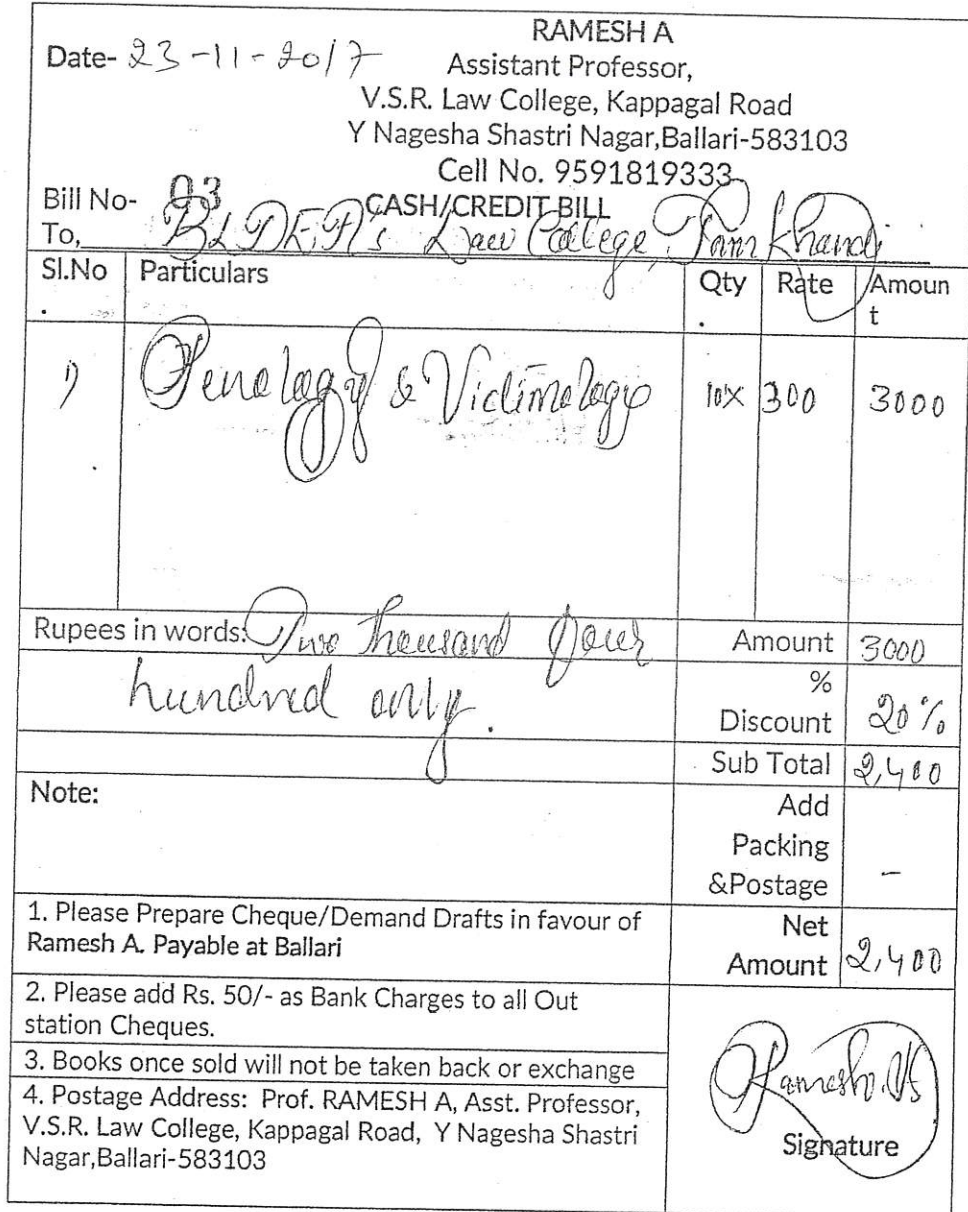 RAMESH A
Date- 23-11-2017 Assistant Professor,
V.S.R. Law College, Kappagal Road
Y Nagesha Shastri Nagar,Ballari-583103
Cell No. 9591819333
Bill No- 03 CASH/CREDIT BILL
To, BLDEA's Law College, Jamkhandi
Sl.No. Particulars Qty. Rate Amount
1) Penology & Victimology 10x 300 3000
Rupees in words: Two thousand four Amount 3000
hundred only. % Discount 20%
Sub Total 2,400
Note: Add Packing &Postage -
1. Please Prepare Cheque/Demand Drafts in favour of
Ramesh A. Payable at Ballari
Net Amount 2,400
2. Please add Rs. 50/- as Bank Charges to all Out
station Cheques.
3. Books once sold will not be taken back or exchange
4. Postage Address: Prof. RAMESH A, Asst. Professor,
V.S.R. Law College, Kappagal Road, Y Nagesha Shastri
Nagar,Ballari-583103
Ramesh
Signature